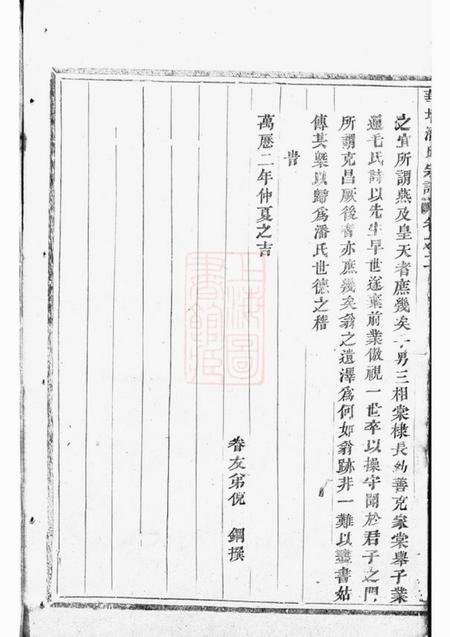 之宜所謂燕及皇天者庶幾矣一男三相棠棣長幼善克家棠舉子業
通毛氏詩以先生早世遂棄前業傲視一世卒以操守聞於君子之門
所謂克昌厥後者亦庶幾矣翁之遺澤為何如翁跡非一難以盡書姑
傳其槩以歸為潘氏世德之稽
旹
萬歷二年仲夏之吉
眷友弟倪 鋼撰
上海圖書館藏